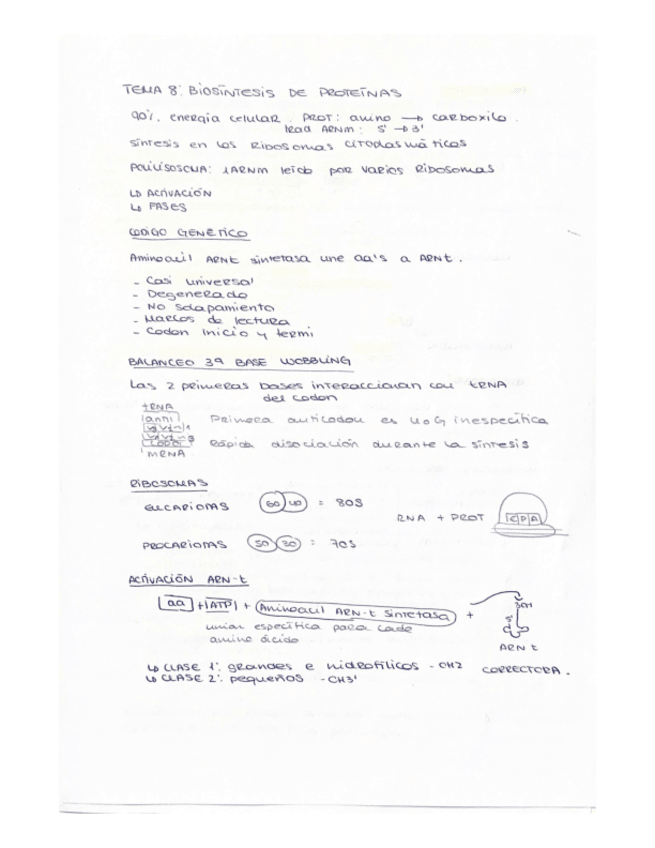 TEMA 8: BIOSÍNTESIS DE PROTEÍNAS
90%. energía celular. PROT: amino → carboxilo.
lead ARNm: 5' → 3'
síntesis en los Ribosomas citoplasmáticos
POLIRISOSOMA: 1ARNM leído por varios Ribosomas
↳ ACTIVACIÓN
↳ FASES
CODIGO GENETICO
Aminoacil ARNt sintetasa une aa's a ARNt.
- Casi universal
- Degenerado
- No solapamiento
- Marcos de lectura
- Codon inicio y termi
BALANCEO 3ª BASE WOBBLING
Las 2 primeras bases interaccionan con tRNA
del codon
tRNA
anti
Primera anticodon es U o G inespecífica
codon
mRNA
Rápida disociación durante la síntesis
RIBOSOMAS
EUCARIOTAS 60 40 = 80S
RNA + PROT E P A
PROCARIOTAS 50 30 = 70S
ACTIVACIÓN ARN-t
aa + ATP + Aminoacil ARN-t sintetasa +
union específica para cada
amino ácido.
ARN t
↳ CLASE 1: grandes e hidrofílicos - OH2
CORRECTORA.
↳ CLASE 2: pequeños - OH3'